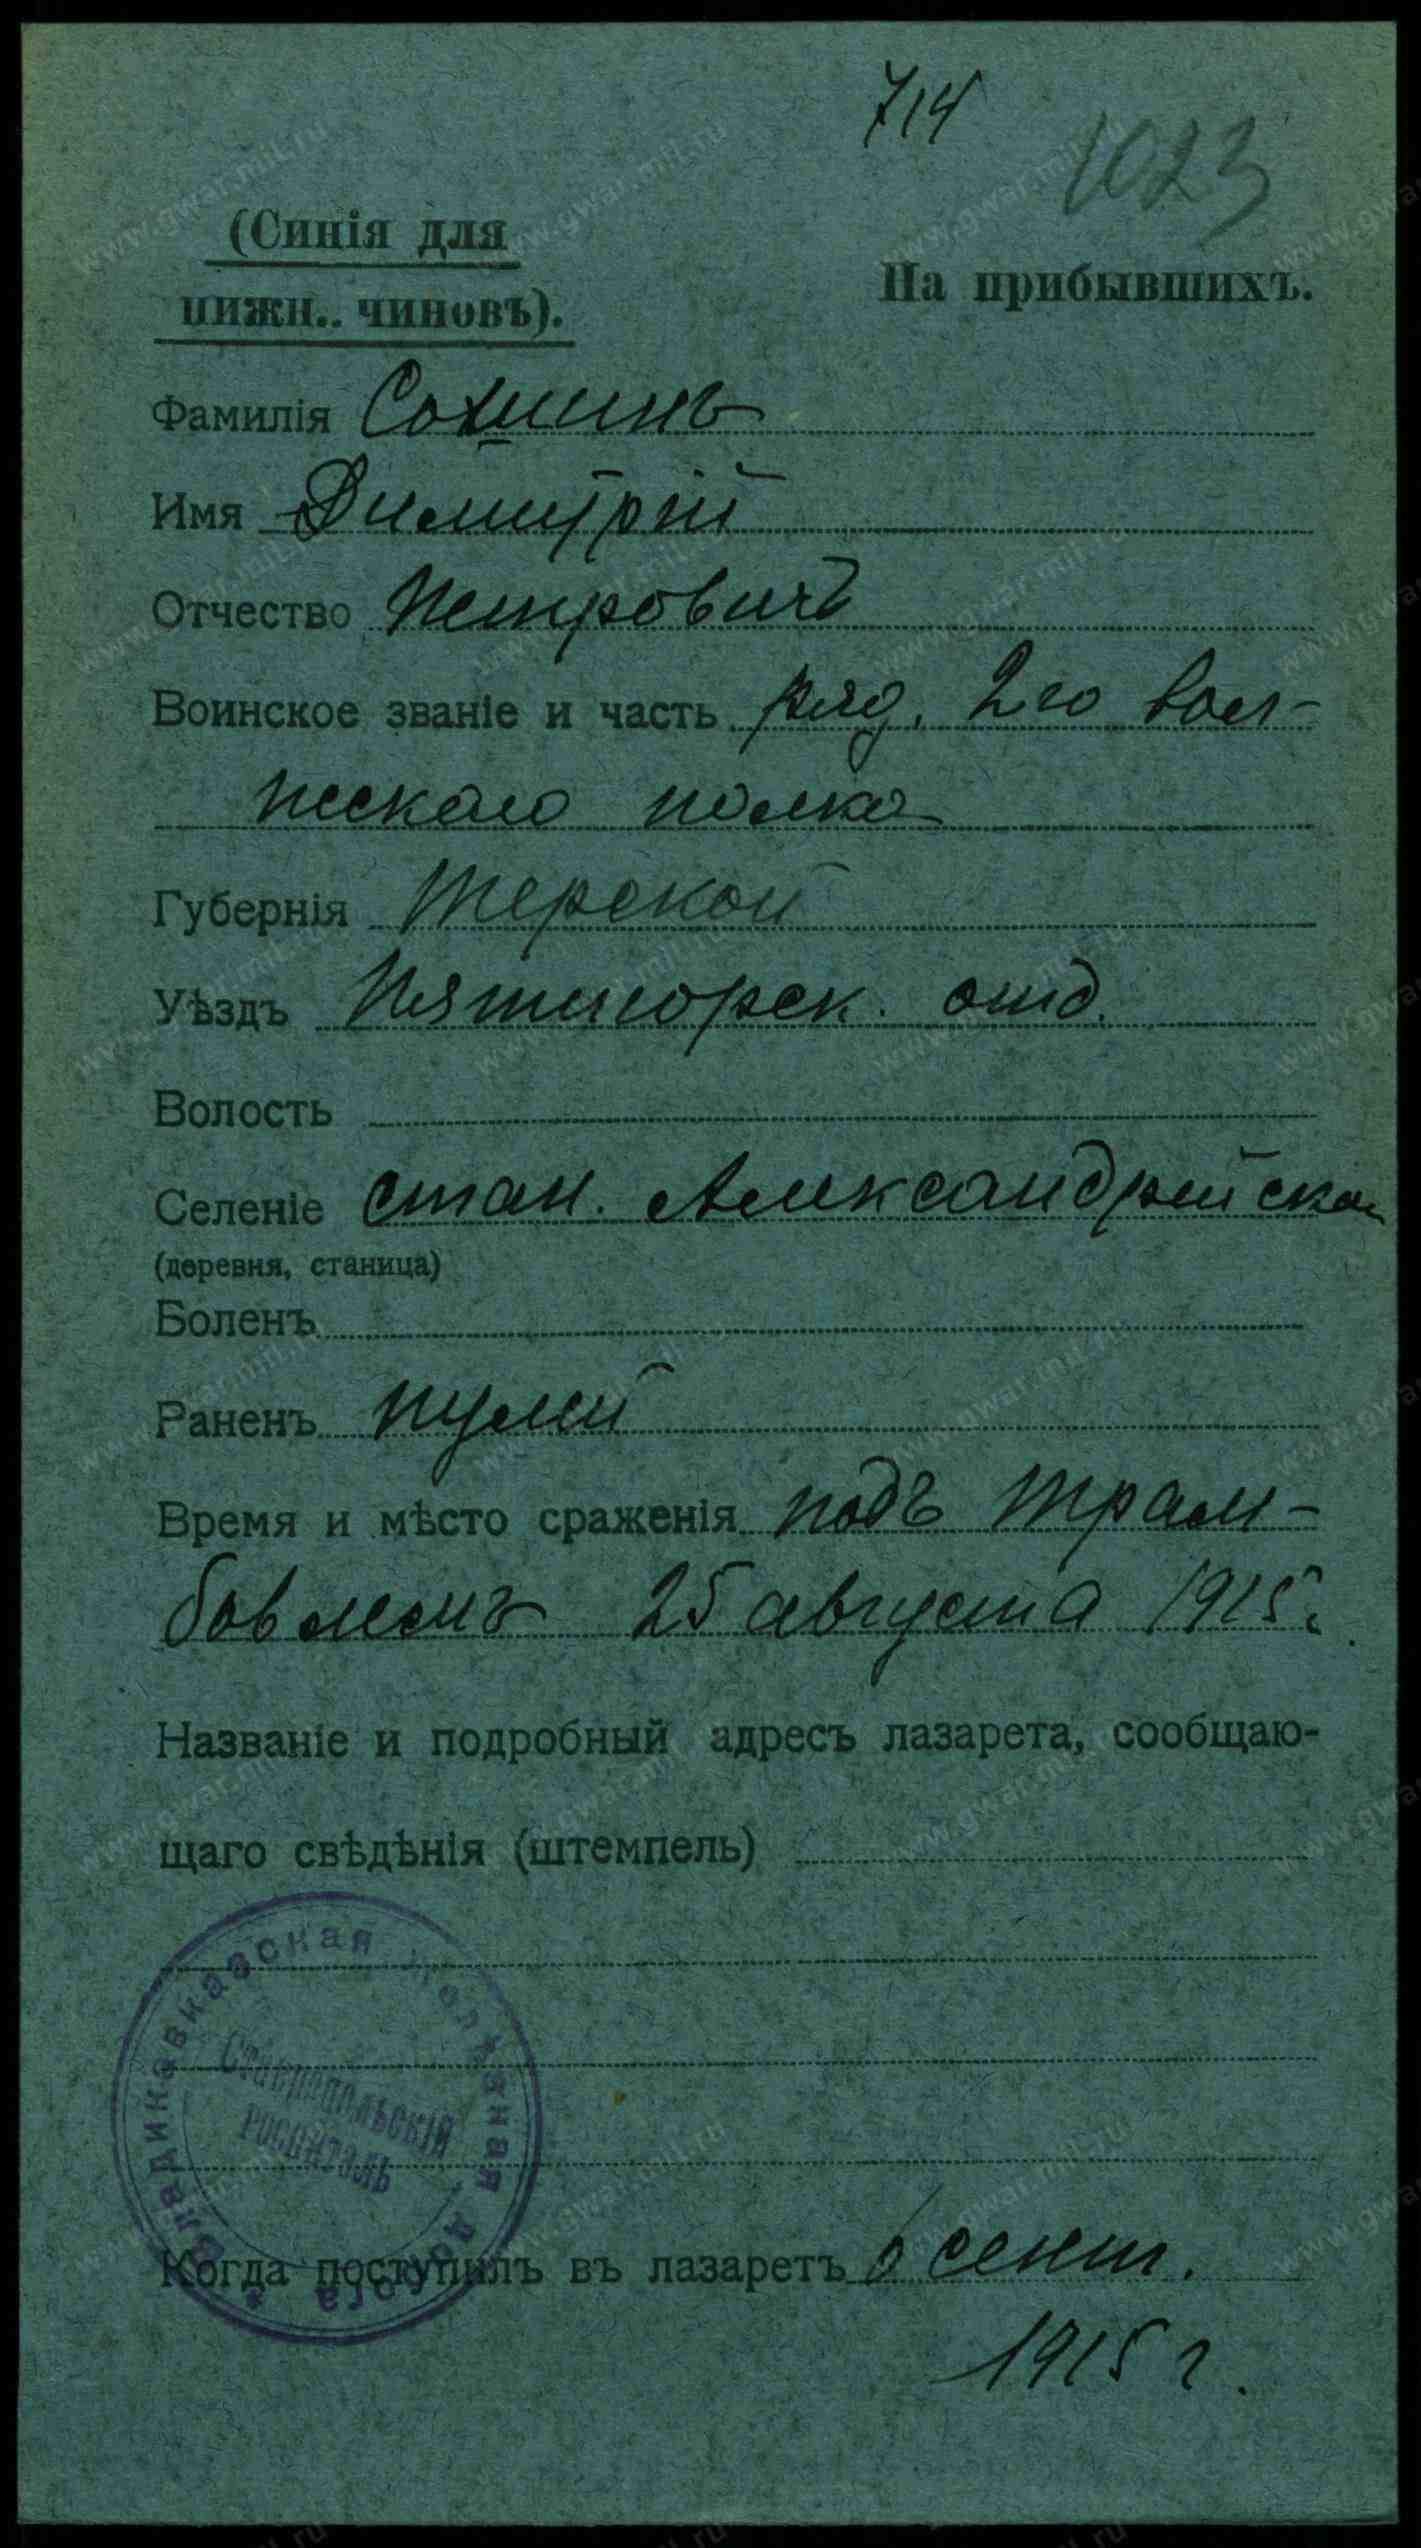 714
1023
(Синія для
нижн.. чиновъ).
На прибывшихъ.
Фамилія Сохшинъ
Имя Димитрій
Отчество Петровичъ
Воинское званіе и часть ряд. 2го вол-
гскаго полка
Губернія Терской
Уѣздъ Пятигорск. отд.
Волость
Селеніе стан. Александрійской
(деревня, станица)
Боленъ
Раненъ пулей
Время и мѣсто сраженія подъ Трам-
бовлемъ 25 августа 1915 г.
Названіе и подробный адресъ лазарета, сообщаю-
щаго свѣдѣнія (штемпель)
Владикавказская желѣзная дорога
Ставропольскій
госпиталь
Когда поступилъ въ лазаретъ 6 сент.
1915 г.
www.gwar.mil.ru